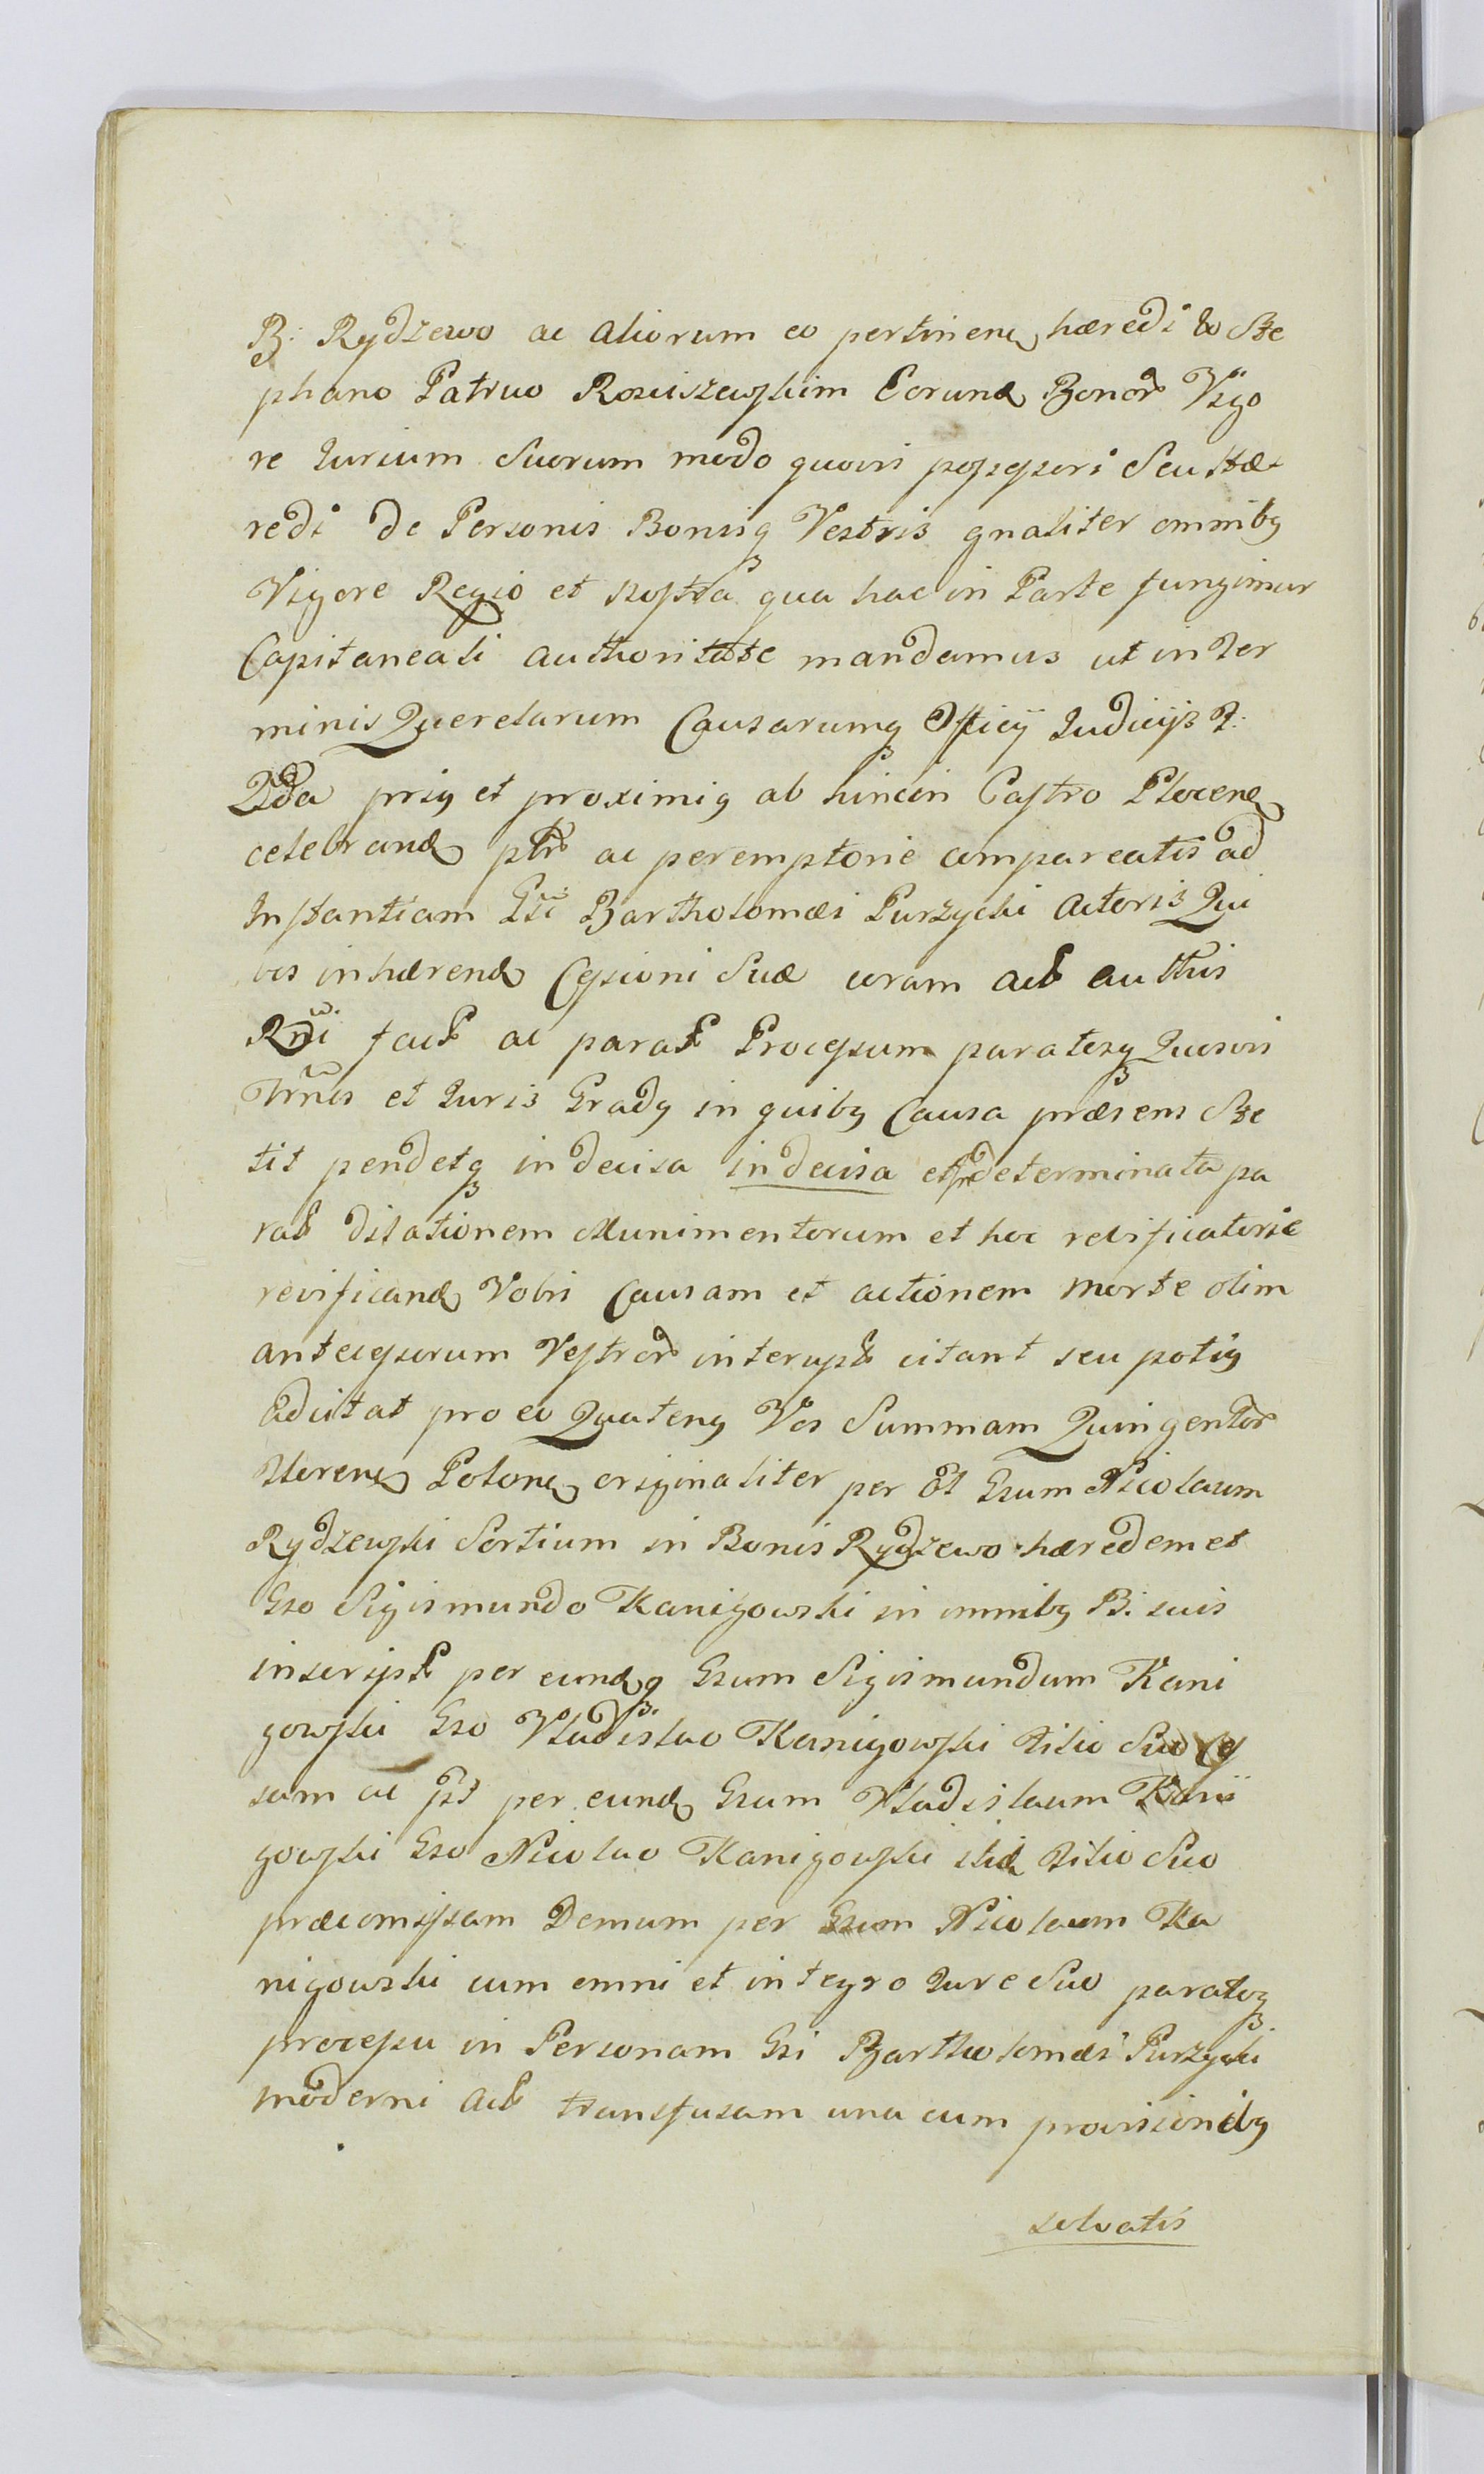 B: Rydzewo ac aliorum eo pertinen hæredi & Ste
phano Patruo Rosciszewskim Eorund Bonor Vigo
re Iurium Suorum modo quovis possessori Seu Hæ-
redi de Personis Bonisq Vestris gnaliter omnibq
Vigore Regio et nostra qua hac in Parte fungimur
Capitaneali authoritate mandamus ut in Ter
minis Querelarum Causarumq Officij Iudicijs T:
prisq et proximiq ab hinc in Castro Plocen
celebrand ptr ac peremptorie compareatis ad
Instantiam Gsi Bartholomæi Purzycki Actoris Qui
vos inhærend Cessioni Suæ coram act authis
fact ac parat Processum paratesq Quosvis
Trnos et Iuris Gradq in quibq Causa præsens Ste
tit pendetq indecisa indecisa et determinata pa
rat dilationem Munimentorum et hoc revificatorie
revificand Vobis Causam et actionem morte olim
antecessorum Vestror interupt citant seu potiq
adcitat pro eo Quatenq Vos Summam Quingentor
floren Polon originaliter per Ol Gsum Nicolaum
Rydzewski Sortium in Bonis Rydzewo hæredem et
Gso Sigismundo Kanigowski in omnibq B: suis
inscript per eundq Gsum Sigismundum Kani
gowski Gso Vladislao Kanigowski filio Suo Ces
sam ac pst per eund Gsum Vladislaum Kani
gowski Gso Nicolao Kanigowski itid filio Suo
præcomissam Demum per Gsum Nicolaum Ka
nigowski cum omni et integro Iure Suo paratoq
processu in Personam Gsi Bartholomæi Purzycki
moderni act transfusam una cum provisionibq
solvatis